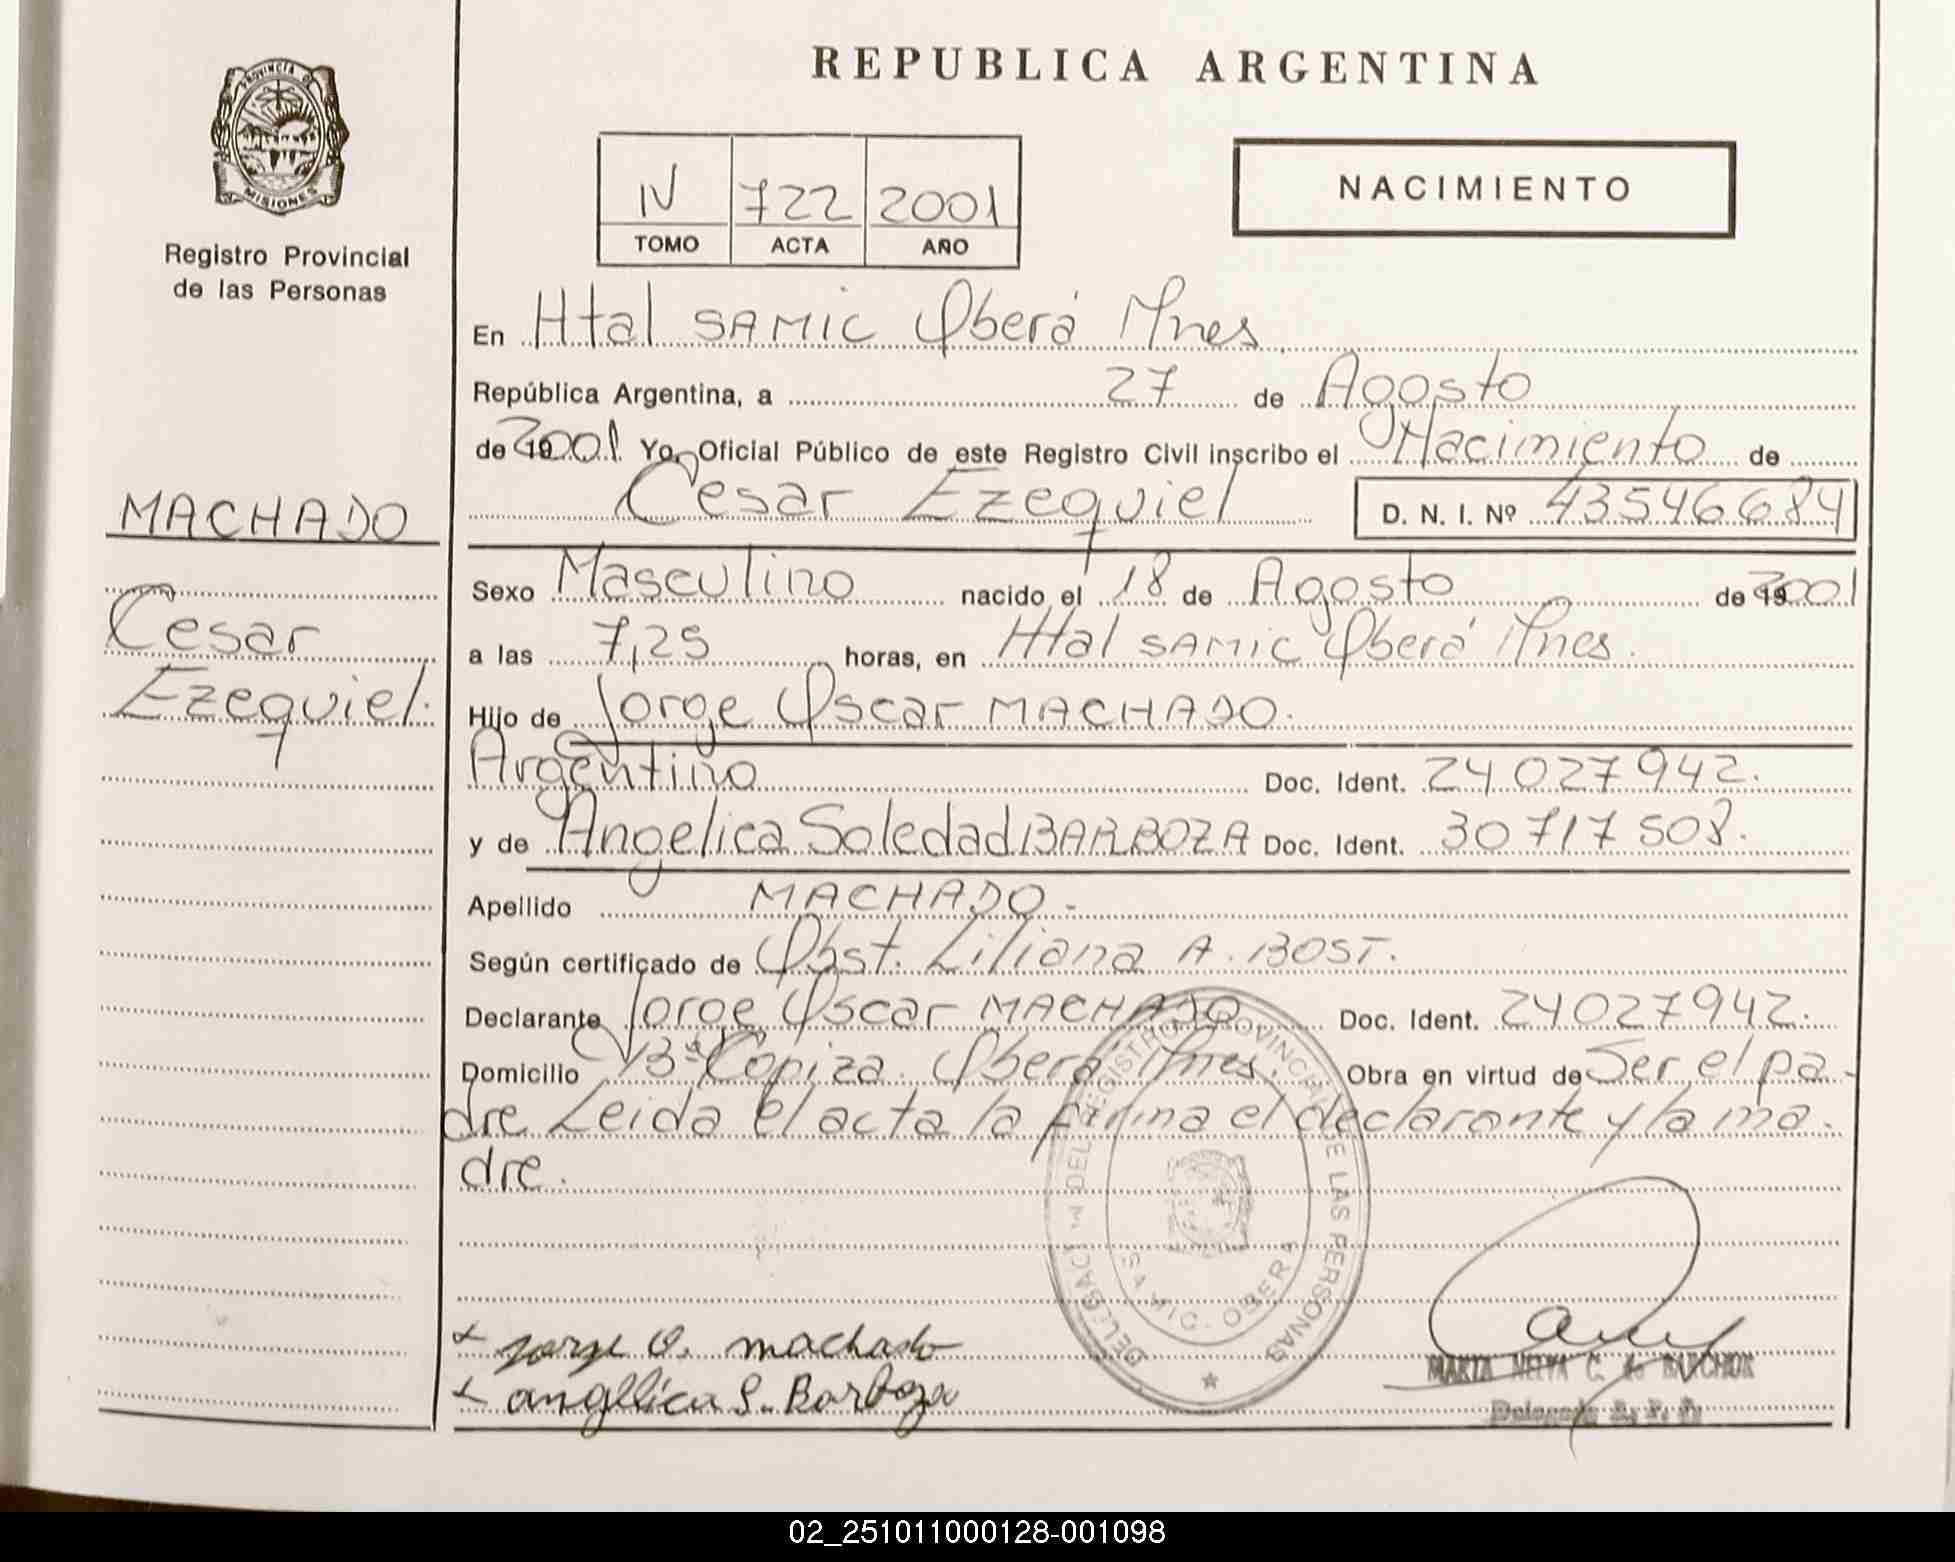 REPUBLICA ARGENTINA
PROVINCIA DE
MISIONES
Registro Provincial
de las Personas
IV 722 2001
TOMO ACTA AÑO
NACIMIENTO
En Htal SAMIC Oberá Mnes
República Argentina, a 27 de Agosto
de 2001 Yo, Oficial Público de este Registro Civil inscribo el Nacimiento de
Cesar Ezequiel D. N. I. Nº 43546684
MACHADO
Cesar
Ezequiel.
Sexo Masculino nacido el 18 de Agosto de 2001
a las 7,25 horas, en Htal SAMIC Oberá Mnes.
Hijo de Jorge Oscar MACHADO.
Argentino Doc. Ident. 24027942.
y de Angelica Soledad BARBOZA Doc. Ident. 30717508.
Apellido MACHADO-
Según certificado de Obst. Liliana A. BOST.
Declarante Jorge Oscar MACHADO Doc. Ident. 24027942.
Domicilio Vª Copiza. Oberá Mnes. Obra en virtud de Ser el pa-
dre Leida el acta la firma el declarante y la ma-
dre.
DELEGACION DEL REGISTRO PROVINCIAL DE LAS PERSONAS
SAMIC - OBERA
Jorge O. machado
angelica S. Barboza
MARTA C. de
Delegada R. P. P.
02_251011000128-001098